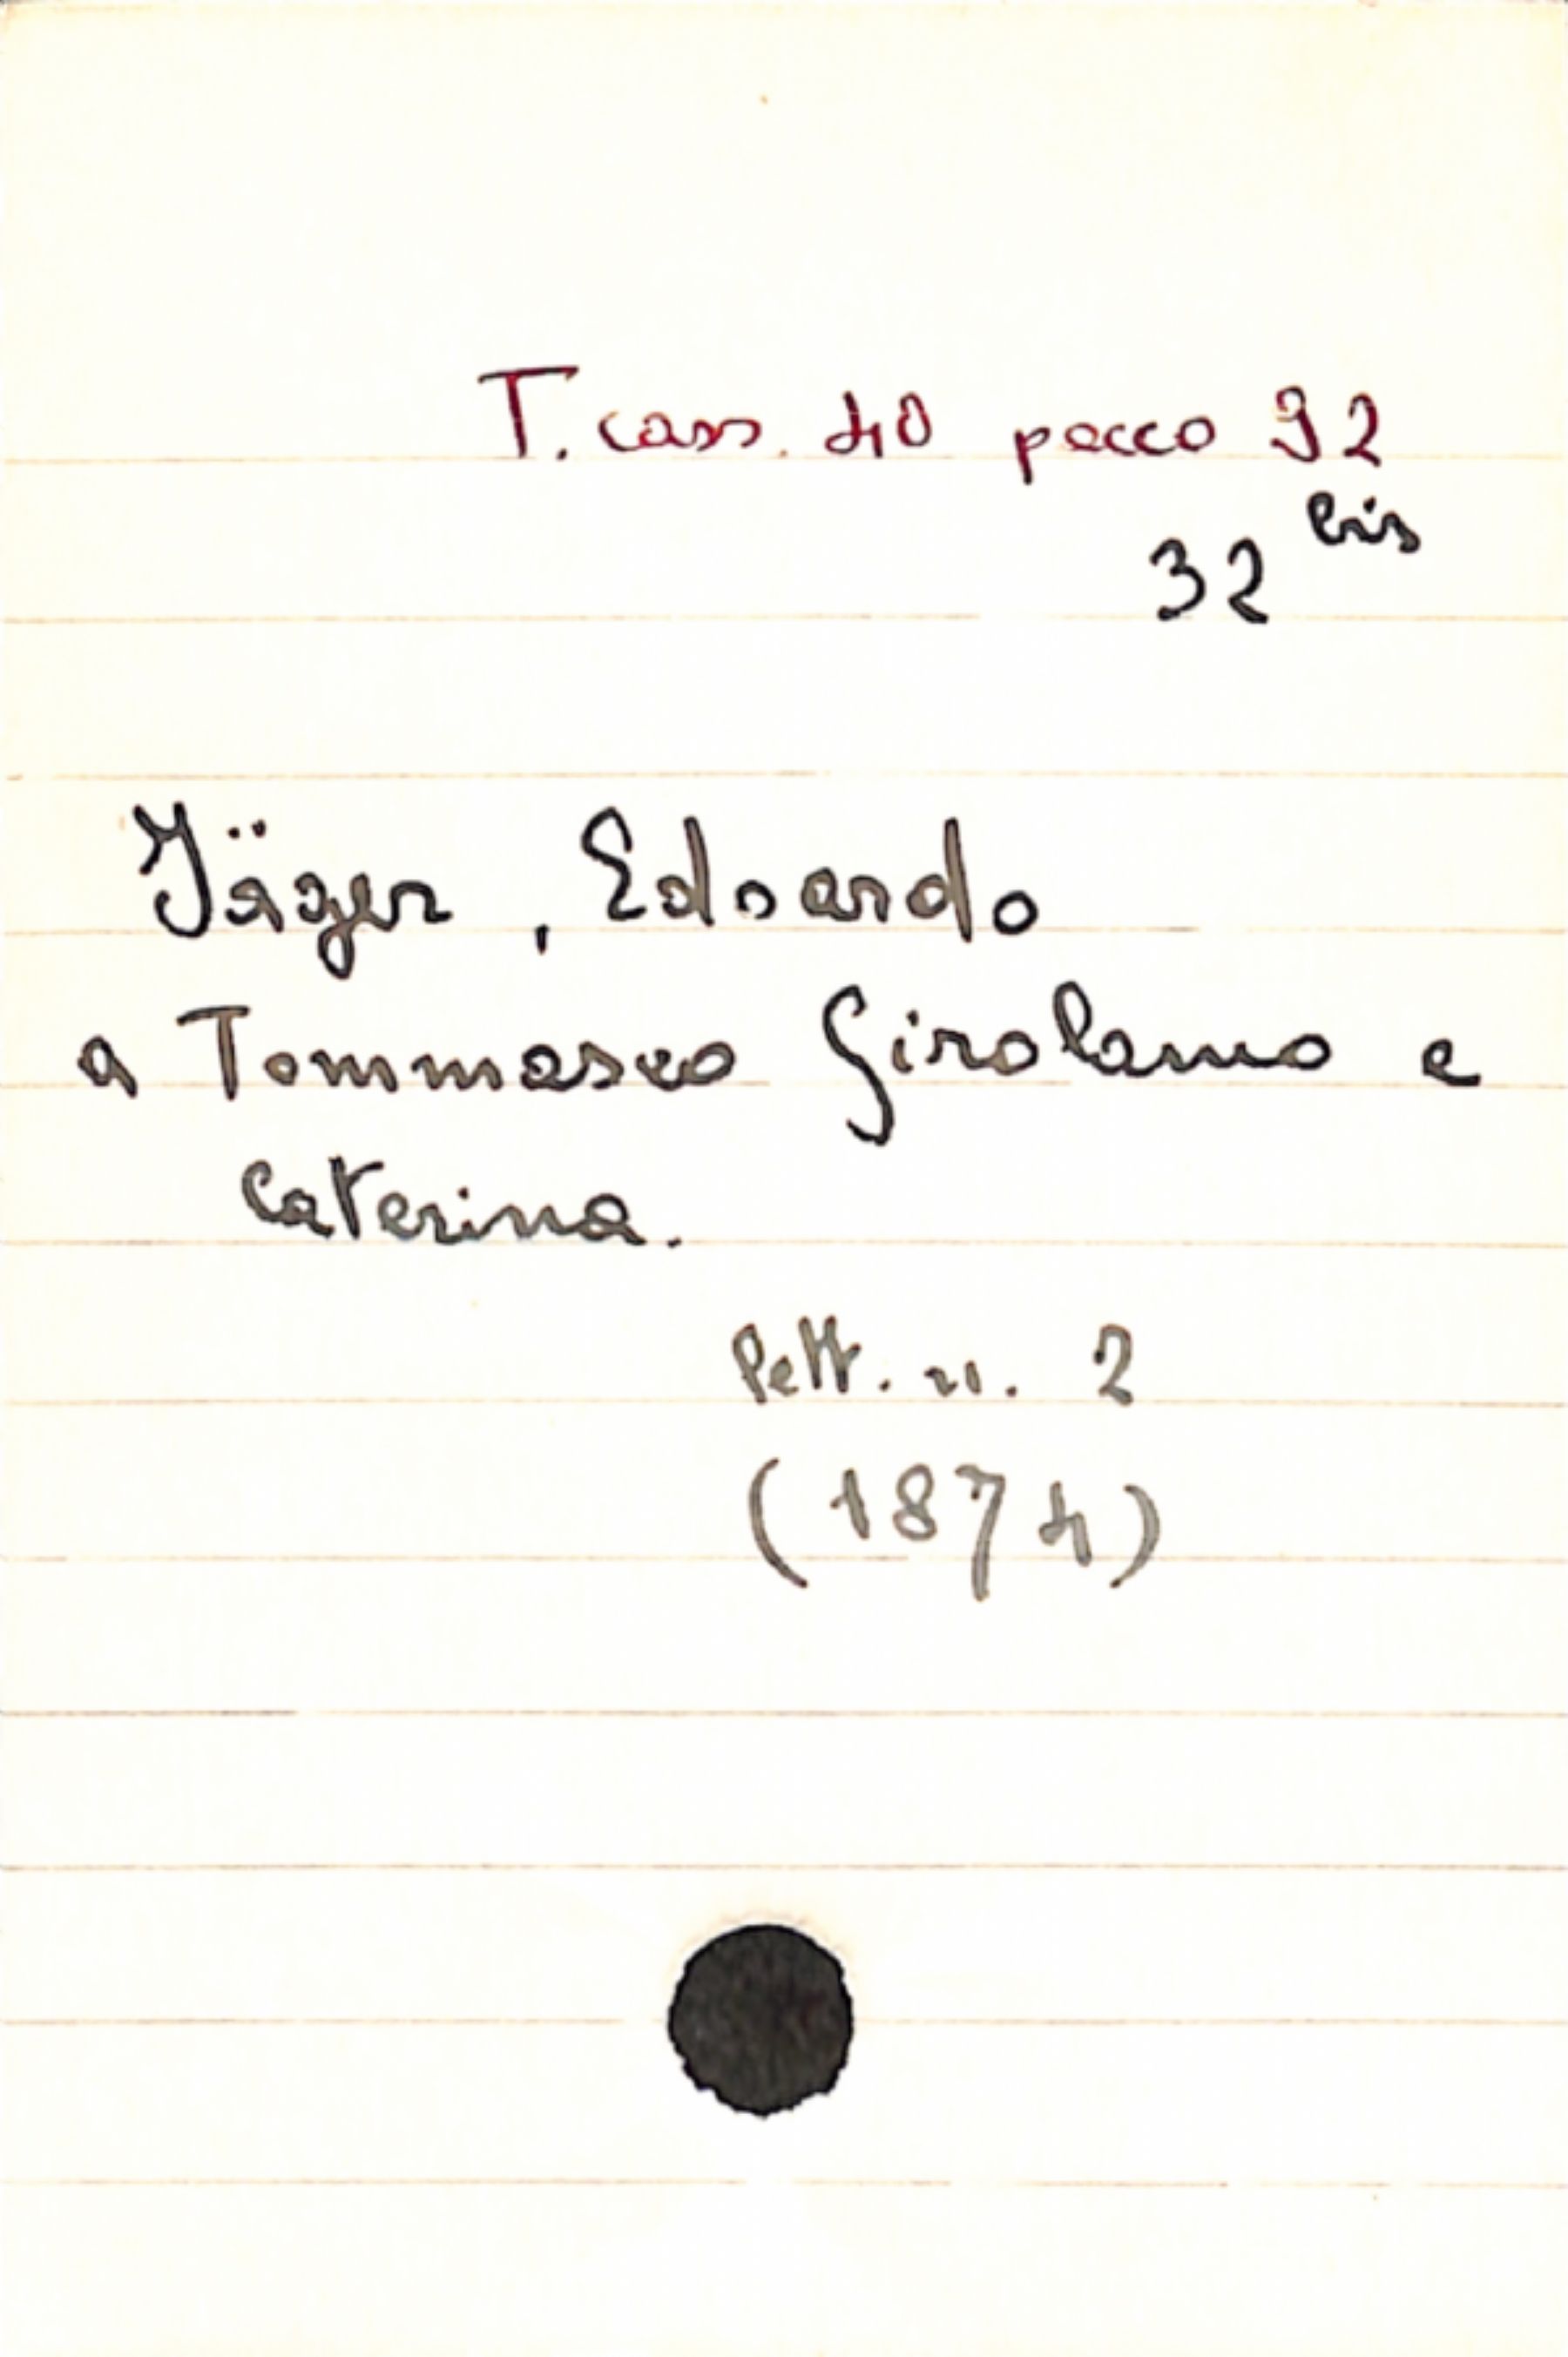 T. cass. 40 pacco 92
32 bis
Jäger, Edoardo
a Tommaseo Girolamo e
Caterina.
lett. n. 2
(1874)